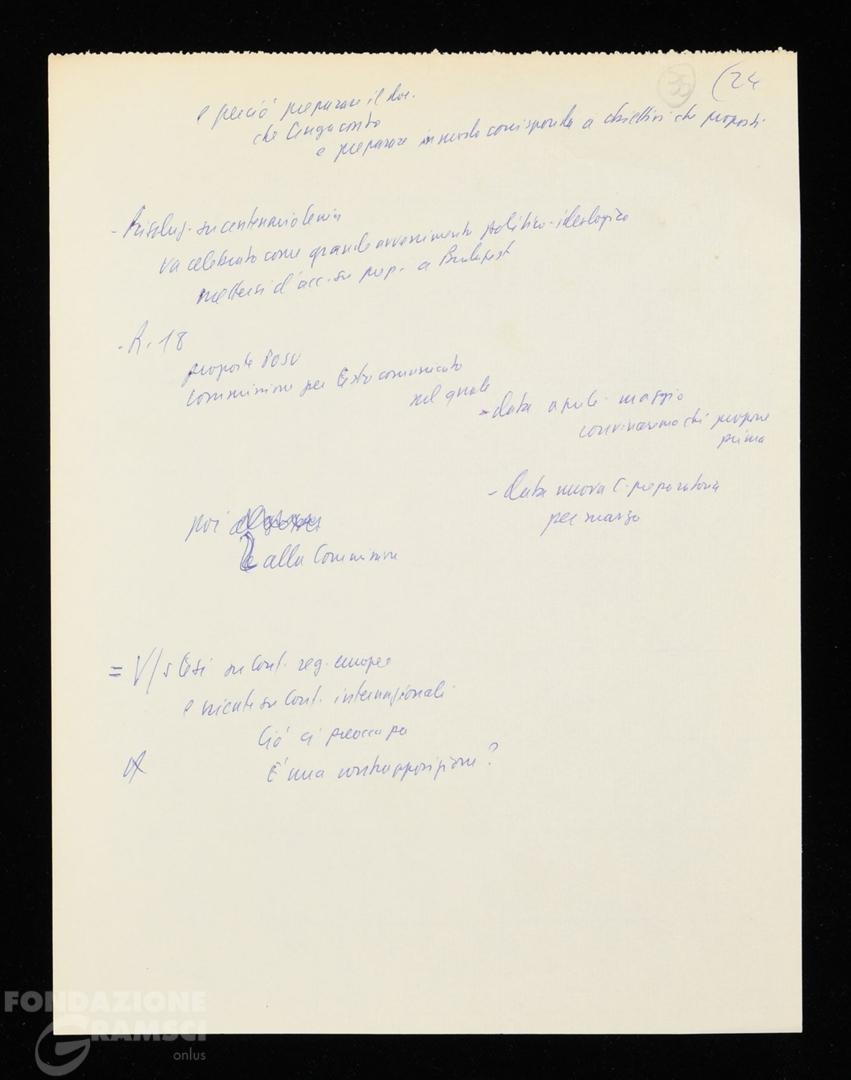 (24
e perciò preparare il doc.
che tenga conto
e preparare in modo corrispond. a obiettivi che proposti.
- Risoluz. su centenario Lenin
va celebrato come grande avvenimento politico-ideologico
mettersi d'acc. su prep. a Budapest
- R. 18
proposte POSU
Commissione per testo comunicato
nel quale
- data aprile-maggio
conviviamo chi propone
prima
- data nuova C. preparatoria
per marzo
poi
alla Commissione
= V/s tesi su Conf. reg. europee
e niente su Conf. internazionali.
Ciò ci preoccupa
È una contrapposizione?
FONDAZIONE
GRAMSCI
onlus